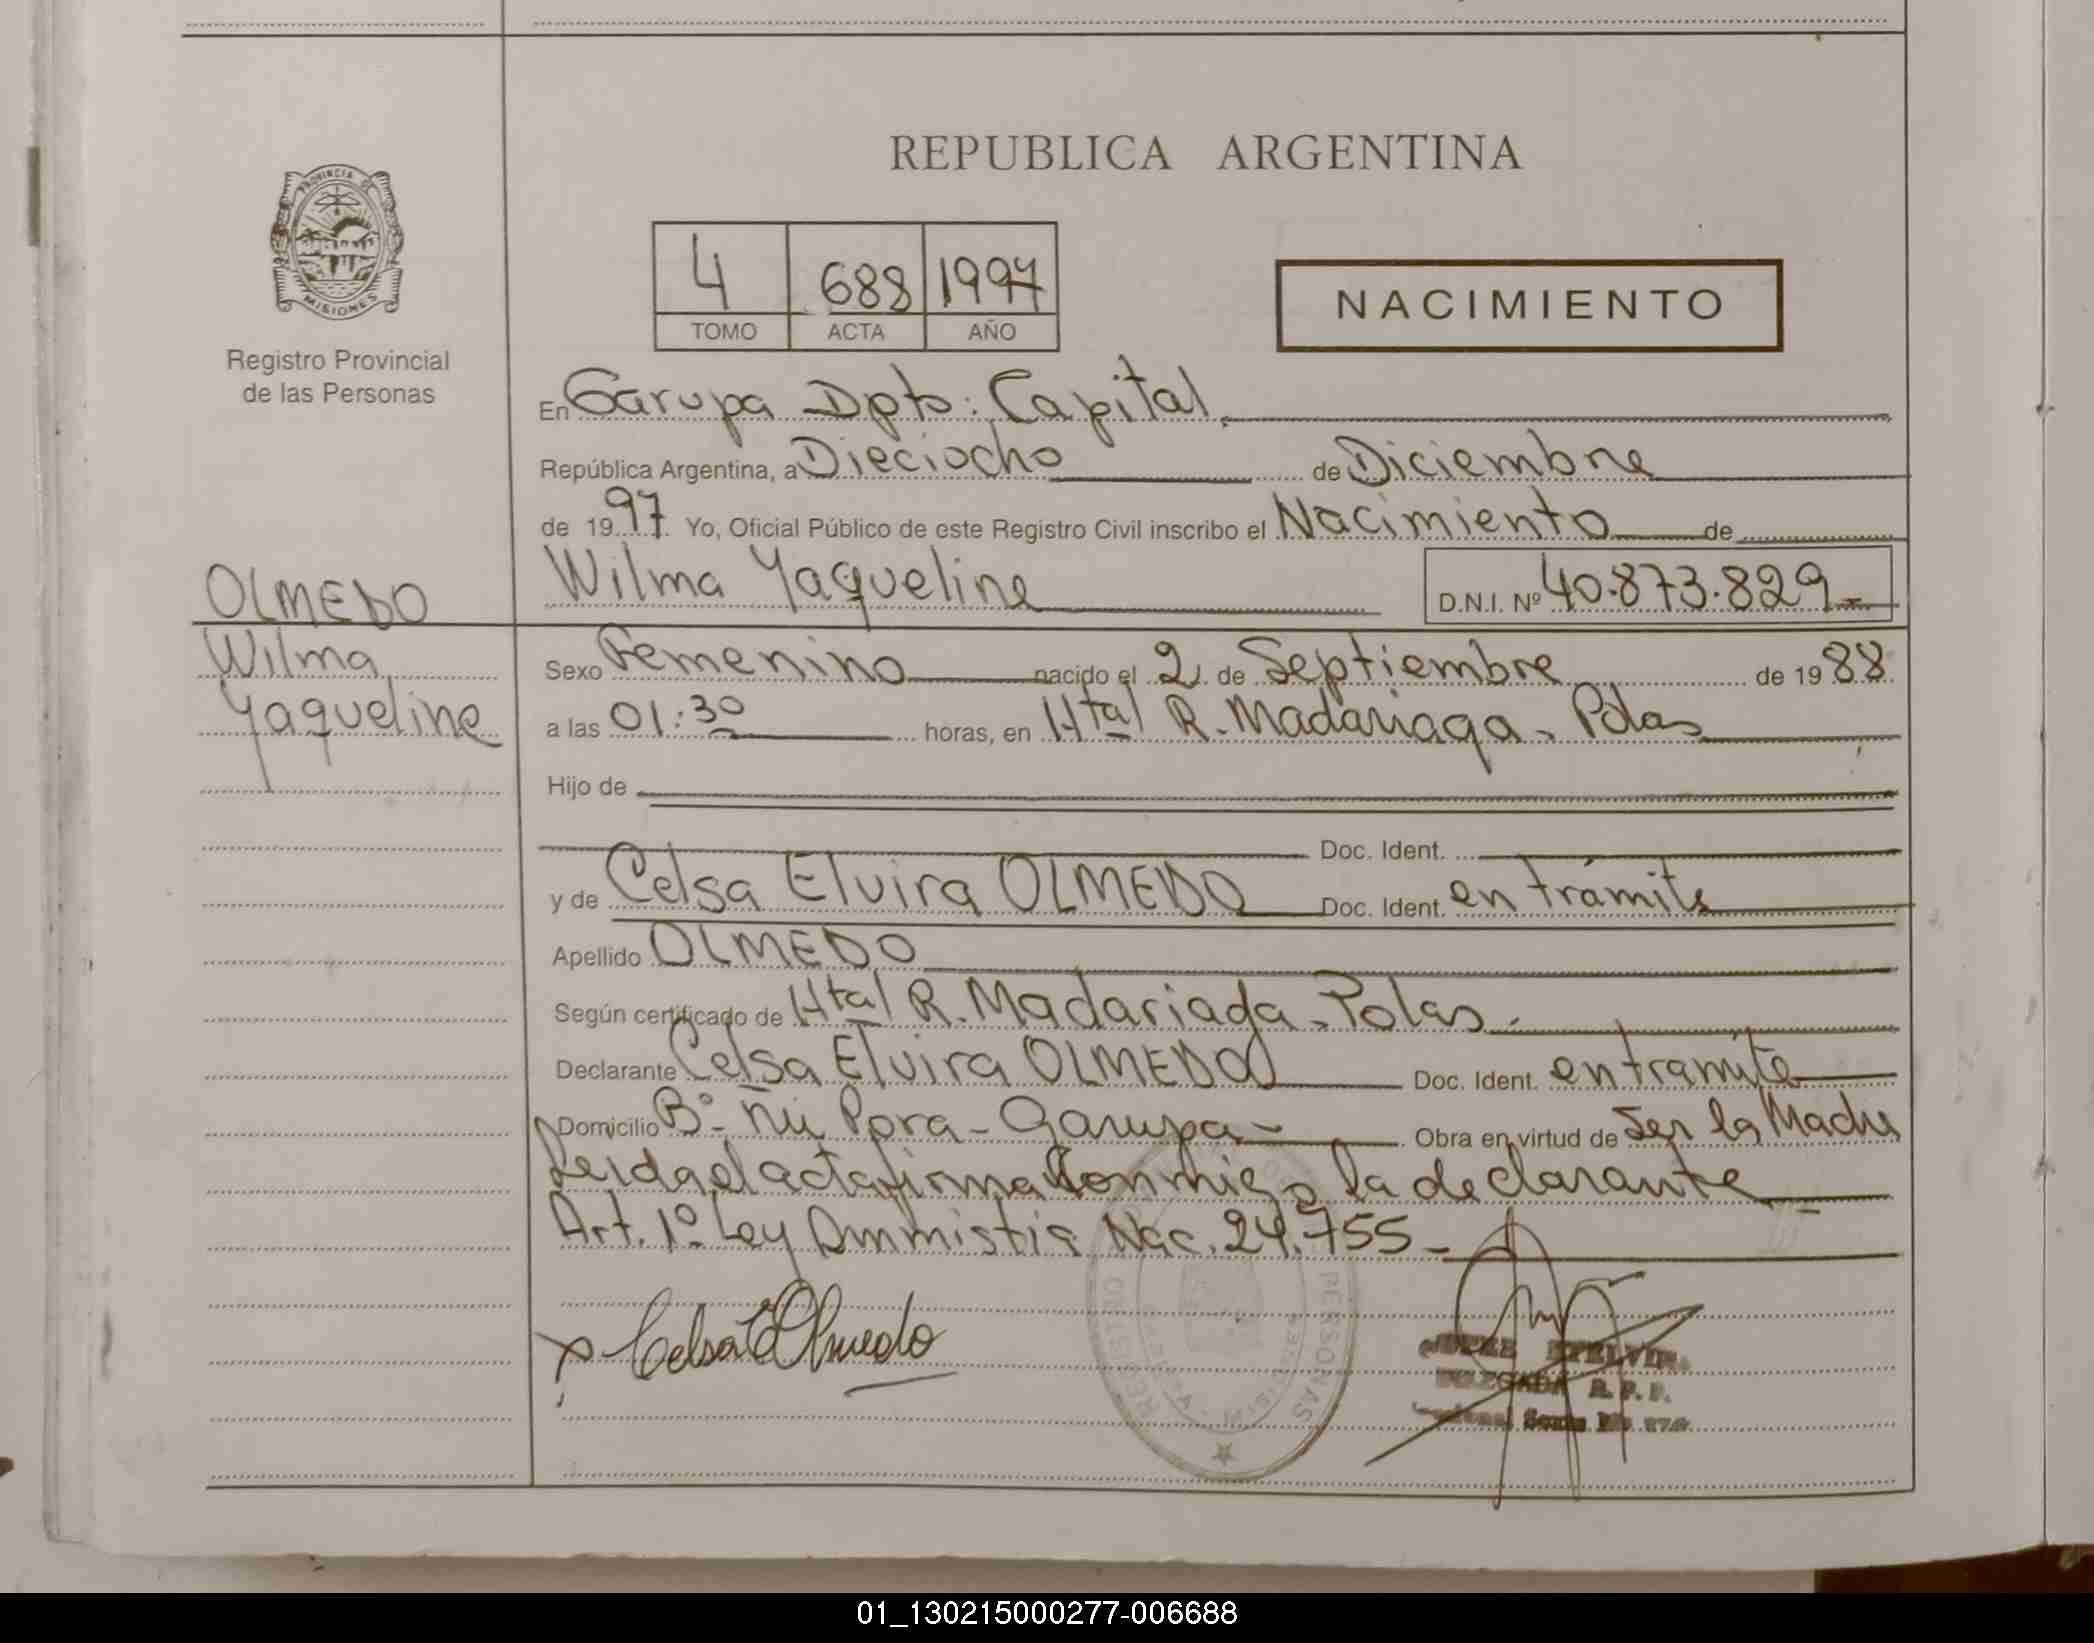 REPUBLICA ARGENTINA
PROVINCIA DE
MISIONES
Registro Provincial
de las Personas
4 688 1997
TOMO ACTA AÑO
NACIMIENTO
En Garupa Dpto: Capital
República Argentina, a Dieciocho de Diciembre
de 1997 Yo, Oficial Público de este Registro Civil inscribo el Nacimiento de
Wilma Yaqueline D.N.I. Nº 40.873.829
OLMEDO
Wilma
Yaqueline
Sexo Femenino nacido el 2 de Septiembre de 1988
a las 01:30 horas, en Htal R. Madariaga - Pdas
Hijo de
Doc. Ident.
y de Celsa Elvira OLMEDO Doc. Ident. en trámite
Apellido OLMEDO
Según certificado de Htal R. Madariaga - Pdas -
Declarante Celsa Elvira OLMEDO Doc. Ident. en tramite
Domicilio Bº Ñu Pora - Garupa - Obra en virtud de Ser la Madre
Leida el acta firma conmigo la declarante
Art. 1º Ley Ammistia Nac. 24.755 -
Celsa E Olmedo
REGISTRO PERSONAS
DELEGADA R. P. P.
01_130215000277-006688